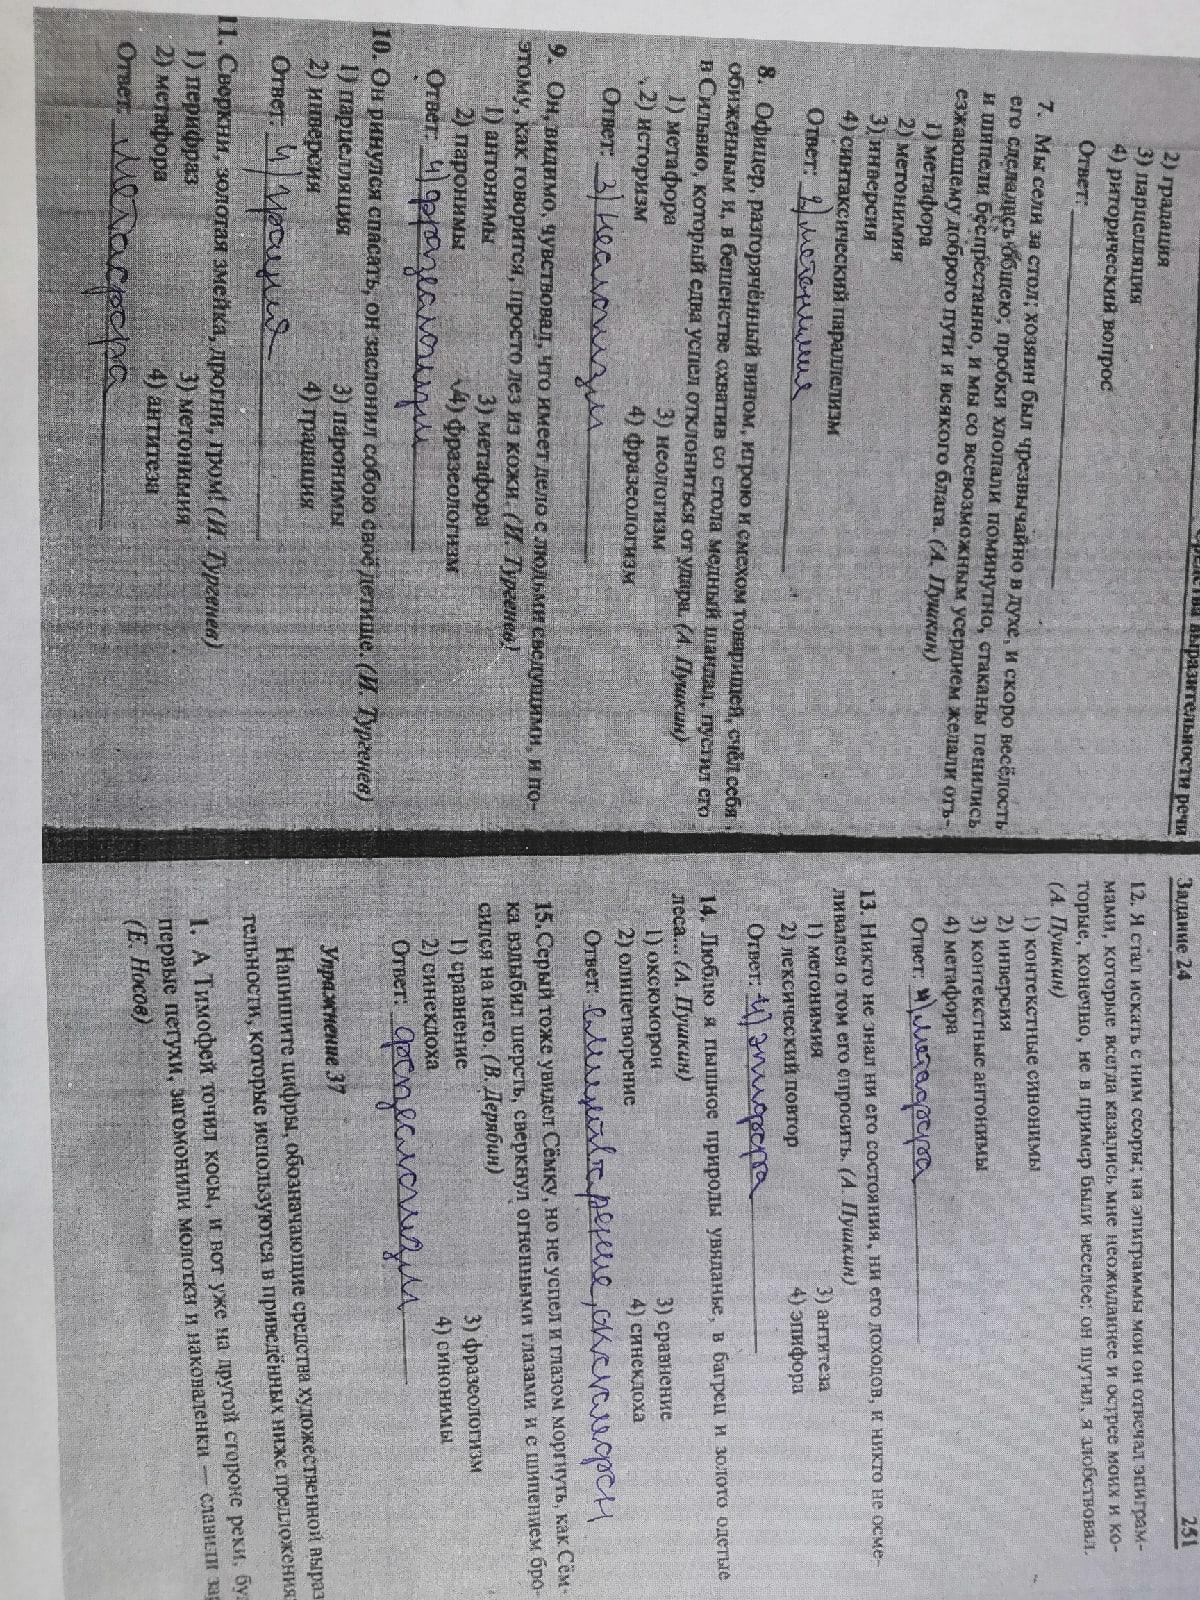 средства выразительности речи
2) градация
3) парцелляция
4) риторический вопрос
Ответ:
7. Мы сели за стол; хозяин был чрезвычайно в духе, и скоро весёлость
его сделалась общею; пробки хлопали поминутно, стаканы пенились
и шипели беспрестанно, и мы со всевозможным усердием желали отъ-
езжающему доброго пути и всякого блага. (А. Пушкин)
1) метафора
2) метонимия
3) инверсия
4) синтаксический параллелизм
Ответ: 2) метонимия
8. Офицер, разгорячённый вином, игрою и смехом товарищей, счёл себя
обиженным и, в бешенстве схватив со стола медный шандал, пустил его
в Сильвио, который едва успел отклониться от удара. (А. Пушкин)
1) метафора
3) неологизм
2) историзм
4) фразеологизм
Ответ: 3) неологизм
9. Он, видимо, чувствовал, что имеет дело с людьми сведущими, и по-
этому, как говорится, просто лез из кожи. (И. Тургенев)
1) антонимы
3) метафора
2) паронимы
4) фразеологизм
Ответ: 4) фразеологизм
10. Он ринулся спасать, он заслонил собою своё детище. (И. Тургенев)
1) парцелляция
3) паронимы
2) инверсия
4) градация
Ответ: 4)
11. Сверкни, золотая змейка, дрогни, гром! (И. Тургенев)
1) перифраз
3) метонимия
2) метафора
4) антитеза
Ответ: метафора
Задание 24
251
12. Я стал искать с ним ссоры; на эпиграммы мои он отвечал эпиграм-
мами, которые всегда казались мне неожиданнее и острее моих и ко-
торые, конечно, не в пример были веселее: он шутил, я злобствовал.
(А. Пушкин)
1) контекстные синонимы
2) инверсия
3) контекстные антонимы
4) метафора
Ответ: 4) метафора
13. Никто не знал ни его состояния, ни его доходов, и никто не осме-
ливался о том его спросить. (А. Пушкин)
1) метонимия
3) антитеза
2) лексический повтор
4) эпифора
Ответ: 4) эпифора
14. Люблю я пышное природы увяданье, в багрец и золото одетые
леса... (А. Пушкин)
1) оксюморон
3) сравнение
2) олицетворение
4) синекдоха
Ответ:
15. Серый тоже увидел Сёмку, но не успел и глазом моргнуть, как Сём-
ка вздыбил шерсть, сверкнул огненными глазами и с шипением бро-
сился на него. (В. Дерябин)
1) сравнение
3) фразеологизм
2) синекдоха
4) синонимы
Ответ: фразеологизм
Упражнение 37
Напишите цифры, обозначающие средства художественной выраз
тельности, которые используются в приведённых ниже предложения
1. А Тимофей точил косы, и вот уже на другой стороне реки, бу
первые петухи, загомонили молотки и наковаленки — славили за
(Е. Носов)